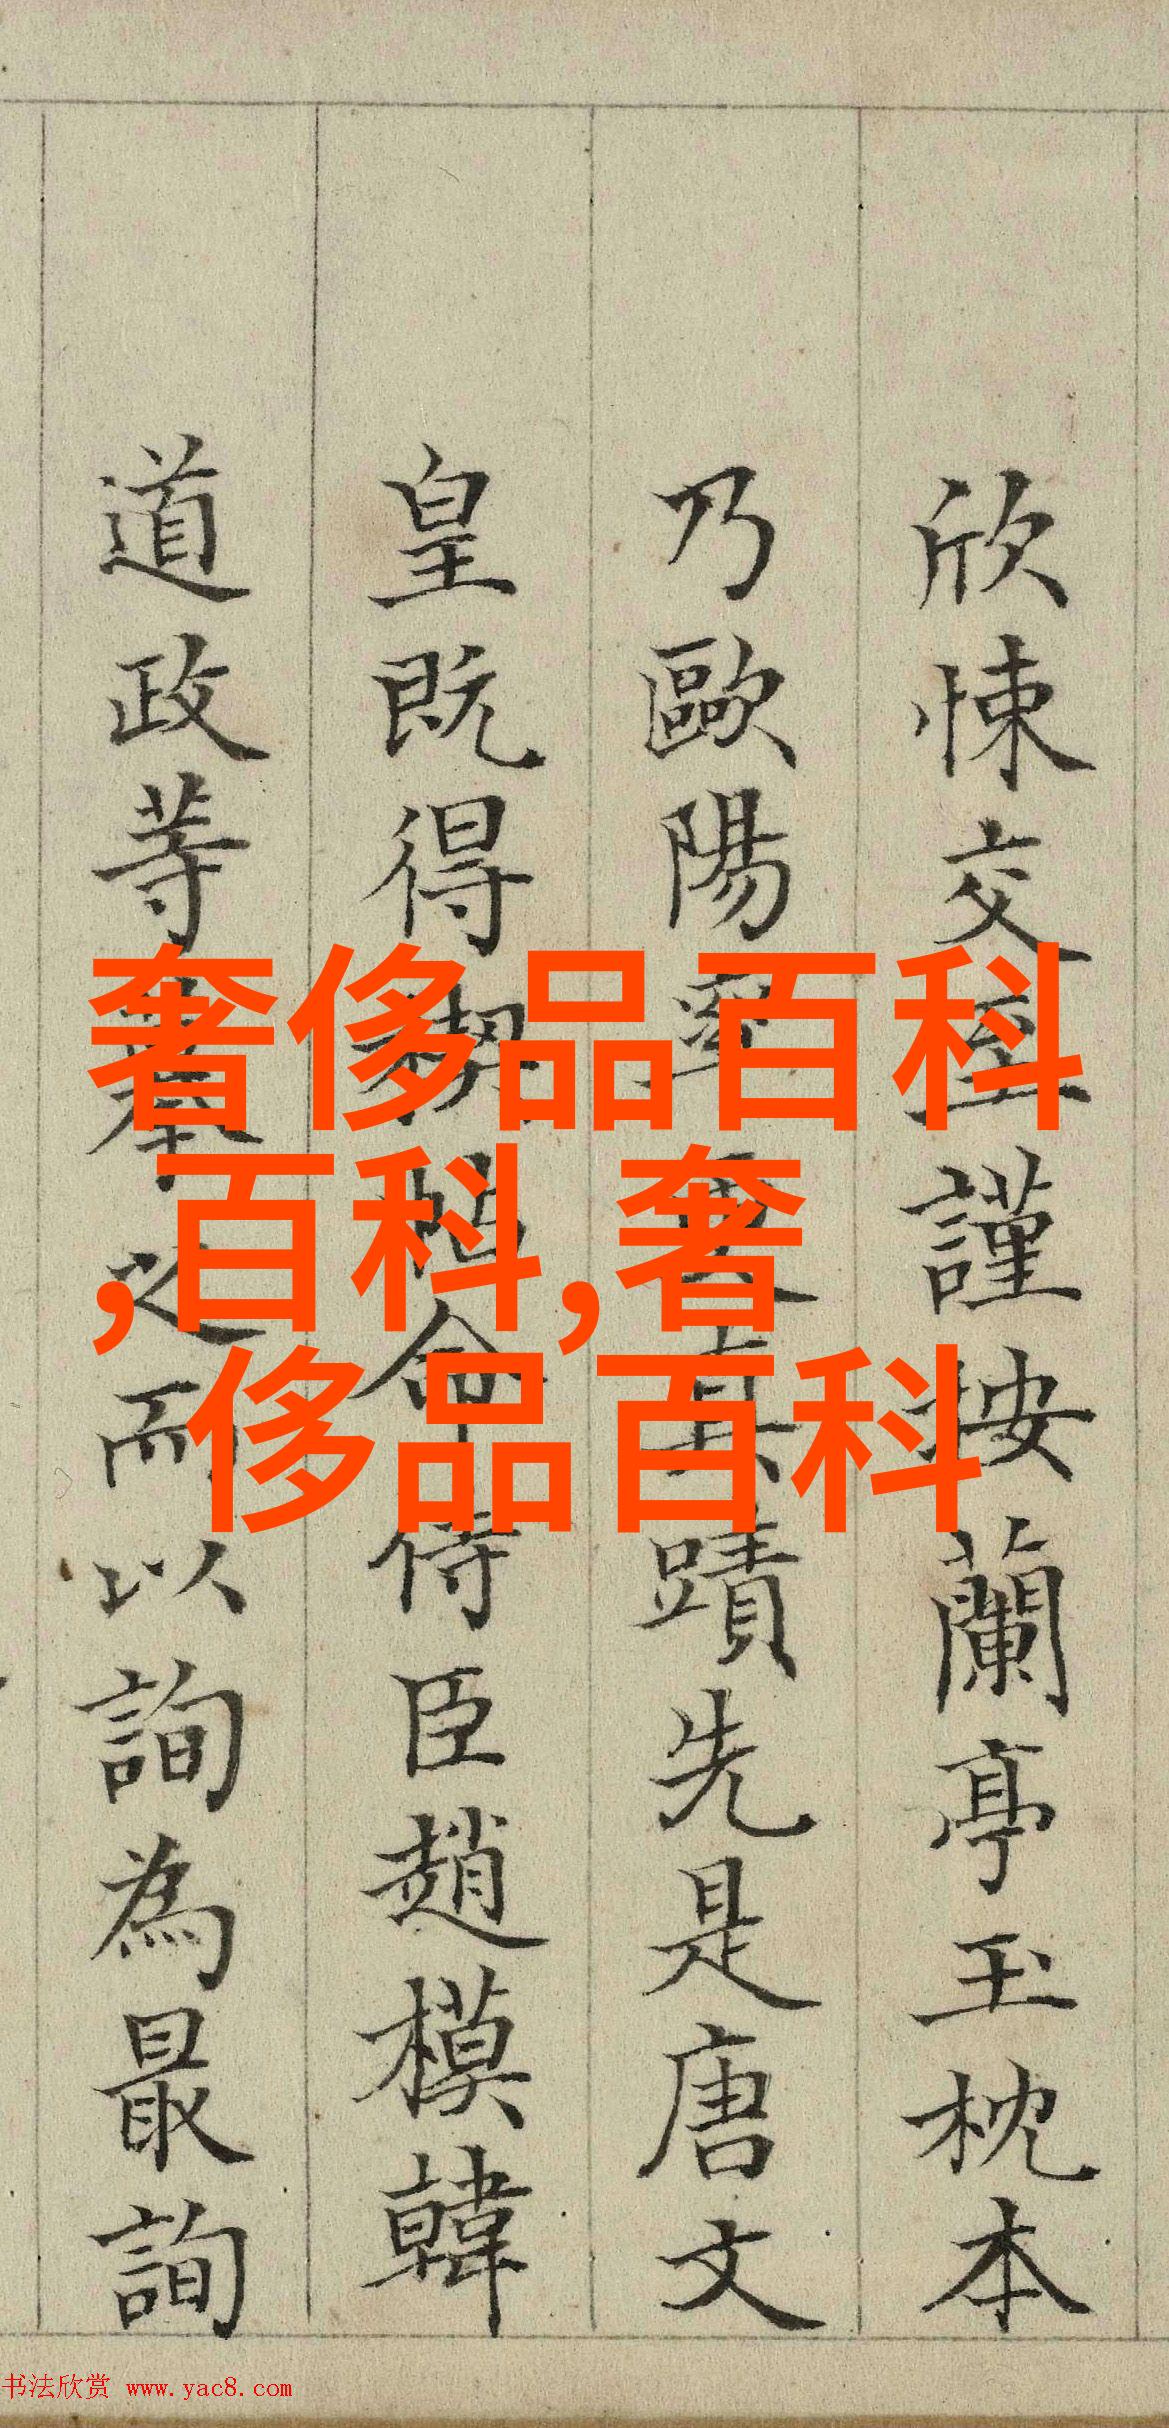 欣悚交至謹按蘭亭玉枕本
乃歐陽率更真蹟先是唐文
皇既得禊帖命侍臣趙模韓
道政等之而以詢為最詢
奢侈品百科
,百科,奢
侈品百科
书法欣赏 www.yac8.com